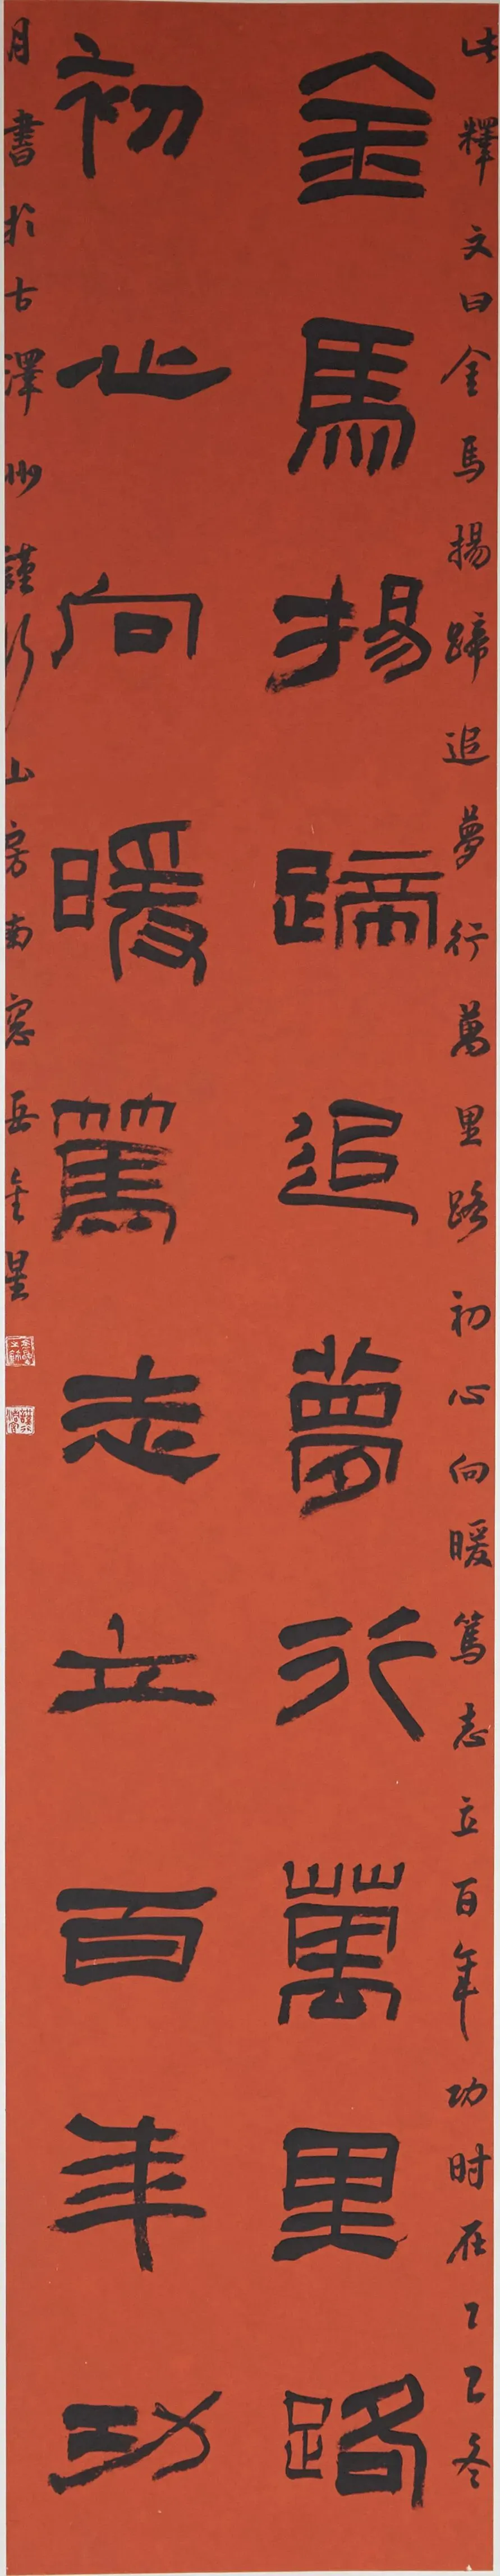 金馬揚蹄追夢行萬里路
初心向暖篤志立百年功
此釋文曰金馬揚蹄追夢行萬里路初心向暖篤志立百年功时在乙巳冬
月書於古澤州謹行山房南窓岳金星